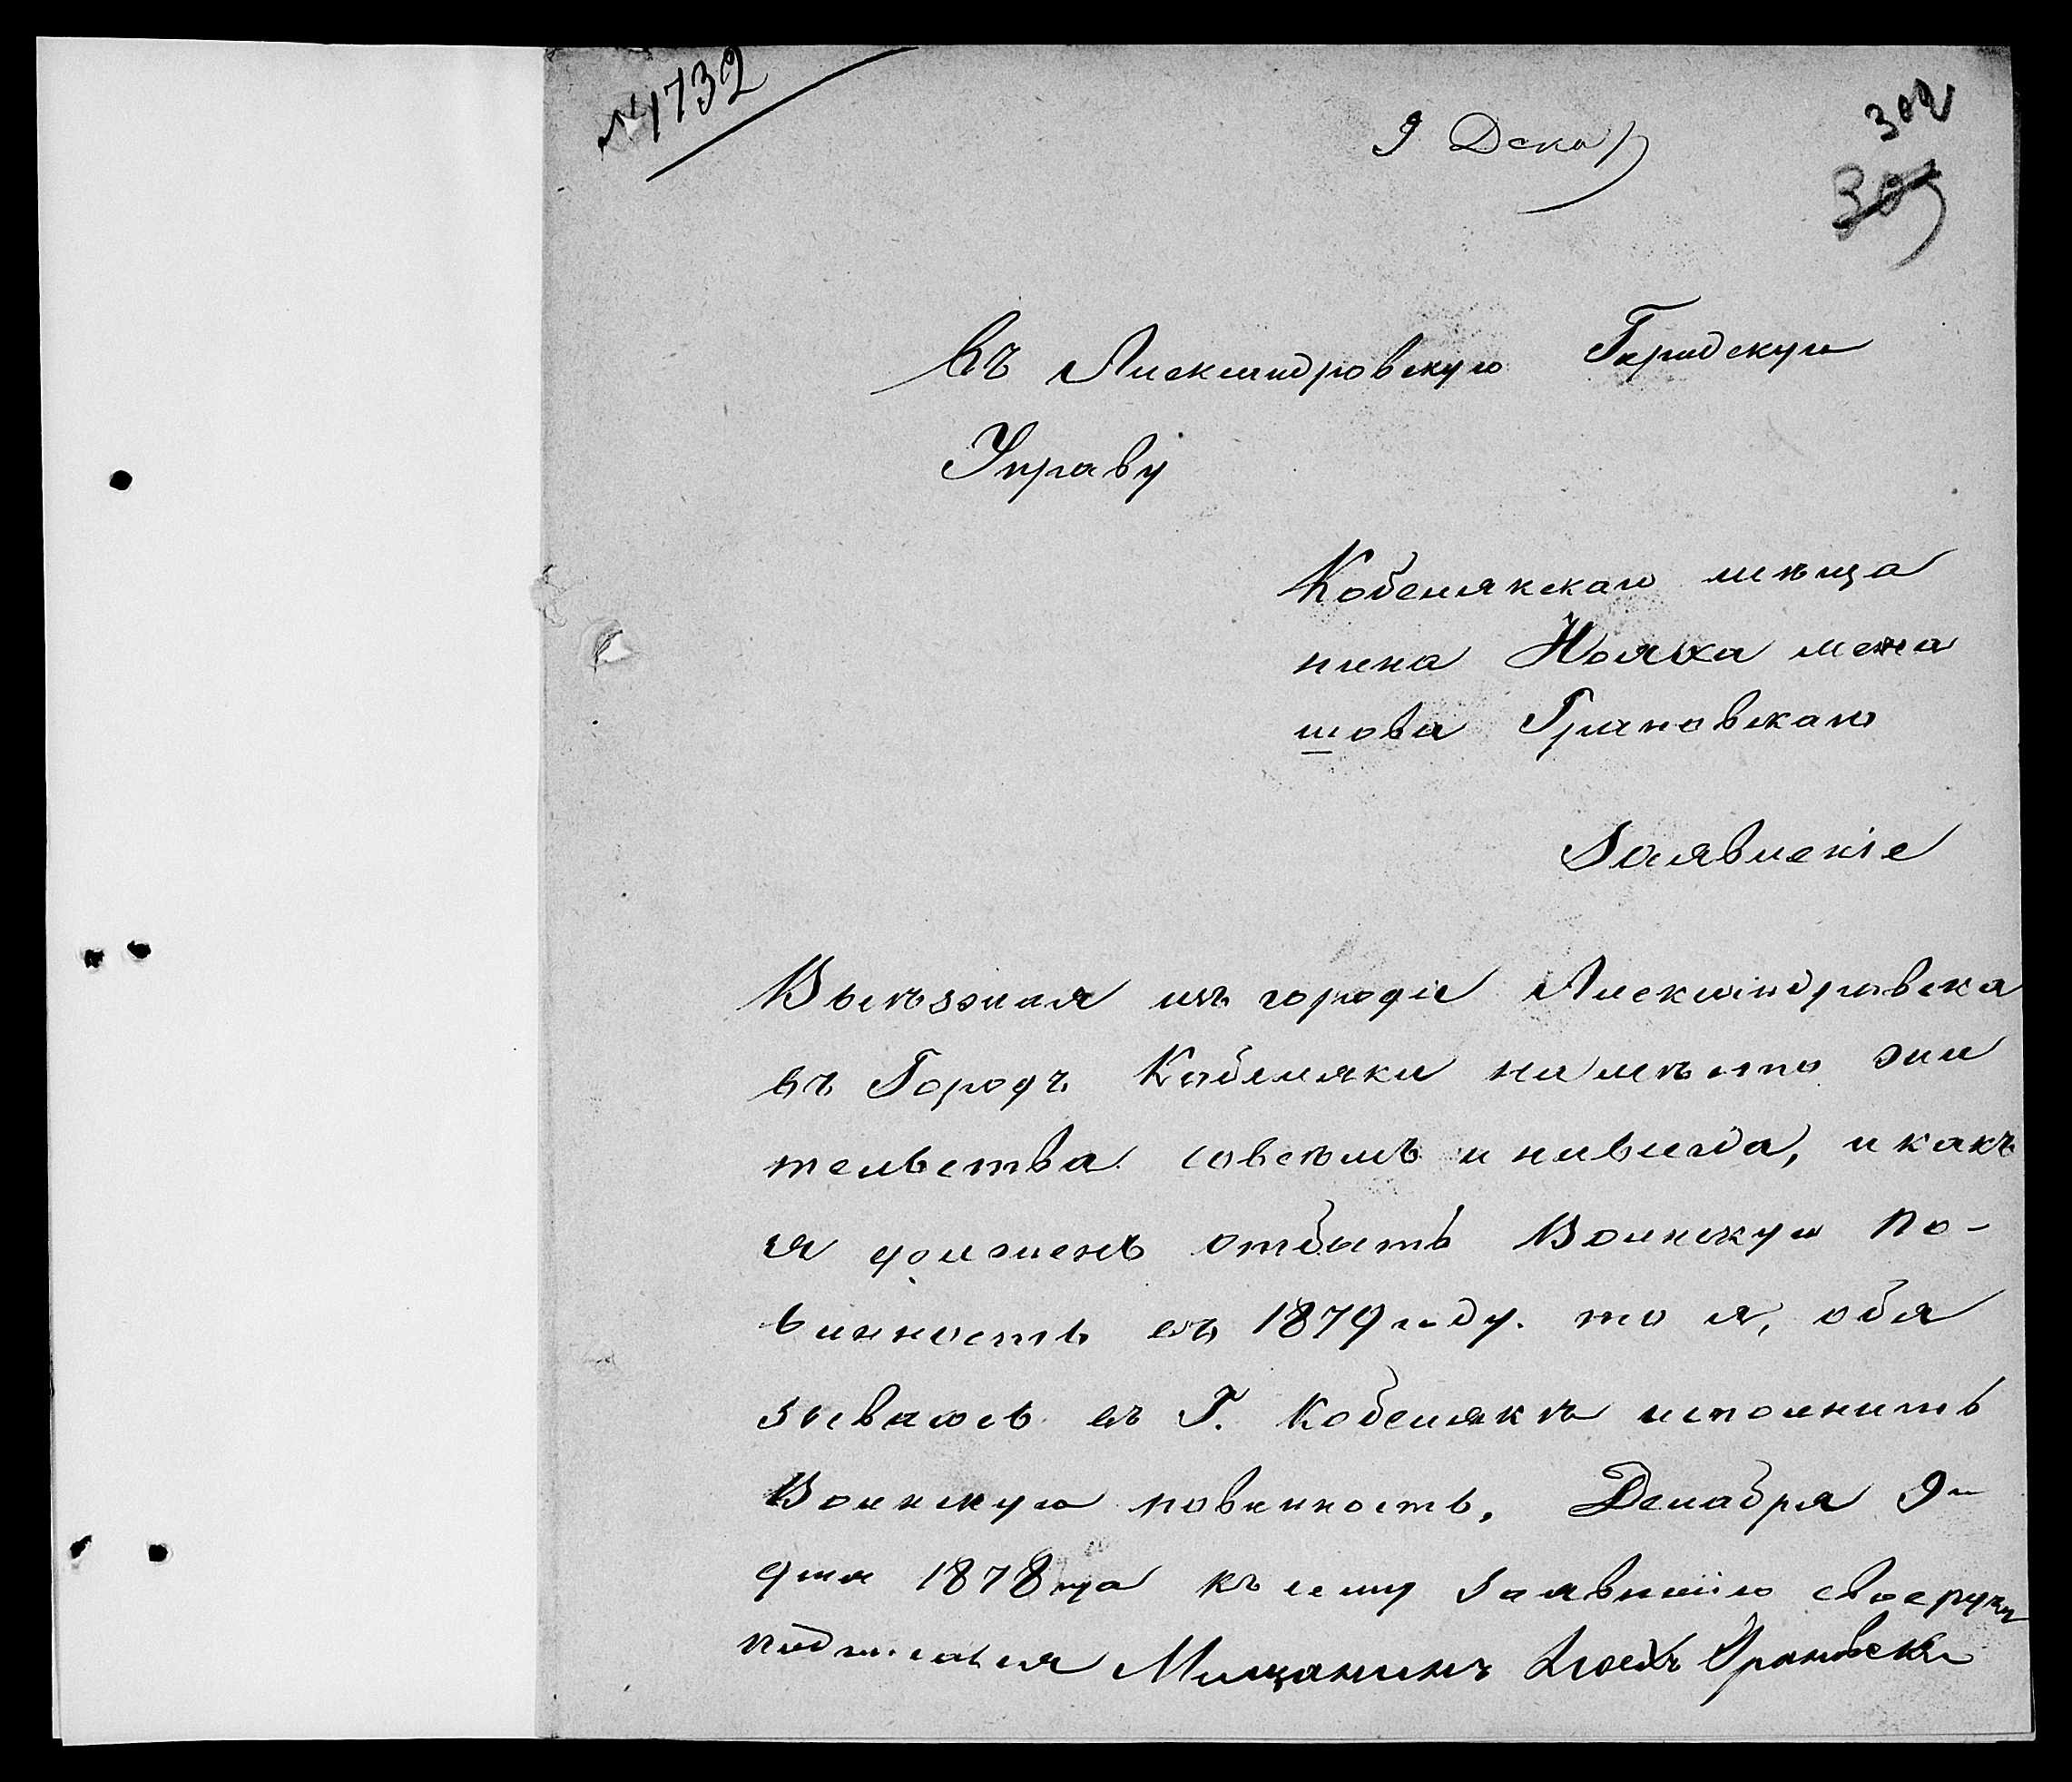 №1732
9 Декаб
302
305
Въ Александровскую Городскую
Управу
Кобелякскаго мѣща
нина Ноаха мена
шова Грановскаго
Заявленіе
Выѣзжая изъ города Александровска
въ Городъ Кобеляки на мѣсто жи
тельства совсѣмъ и навсегда, и какъ
я долженъ отбыть Воинскую по-
винность въ 1879 году. то я, обя
зываюсь въ Г. Кобелякѣ исполнить
Воинскую повинность, Декабря 9го
дня 1878 года къ сему заявлению свое руку
подписался Мищанинъ Грановски